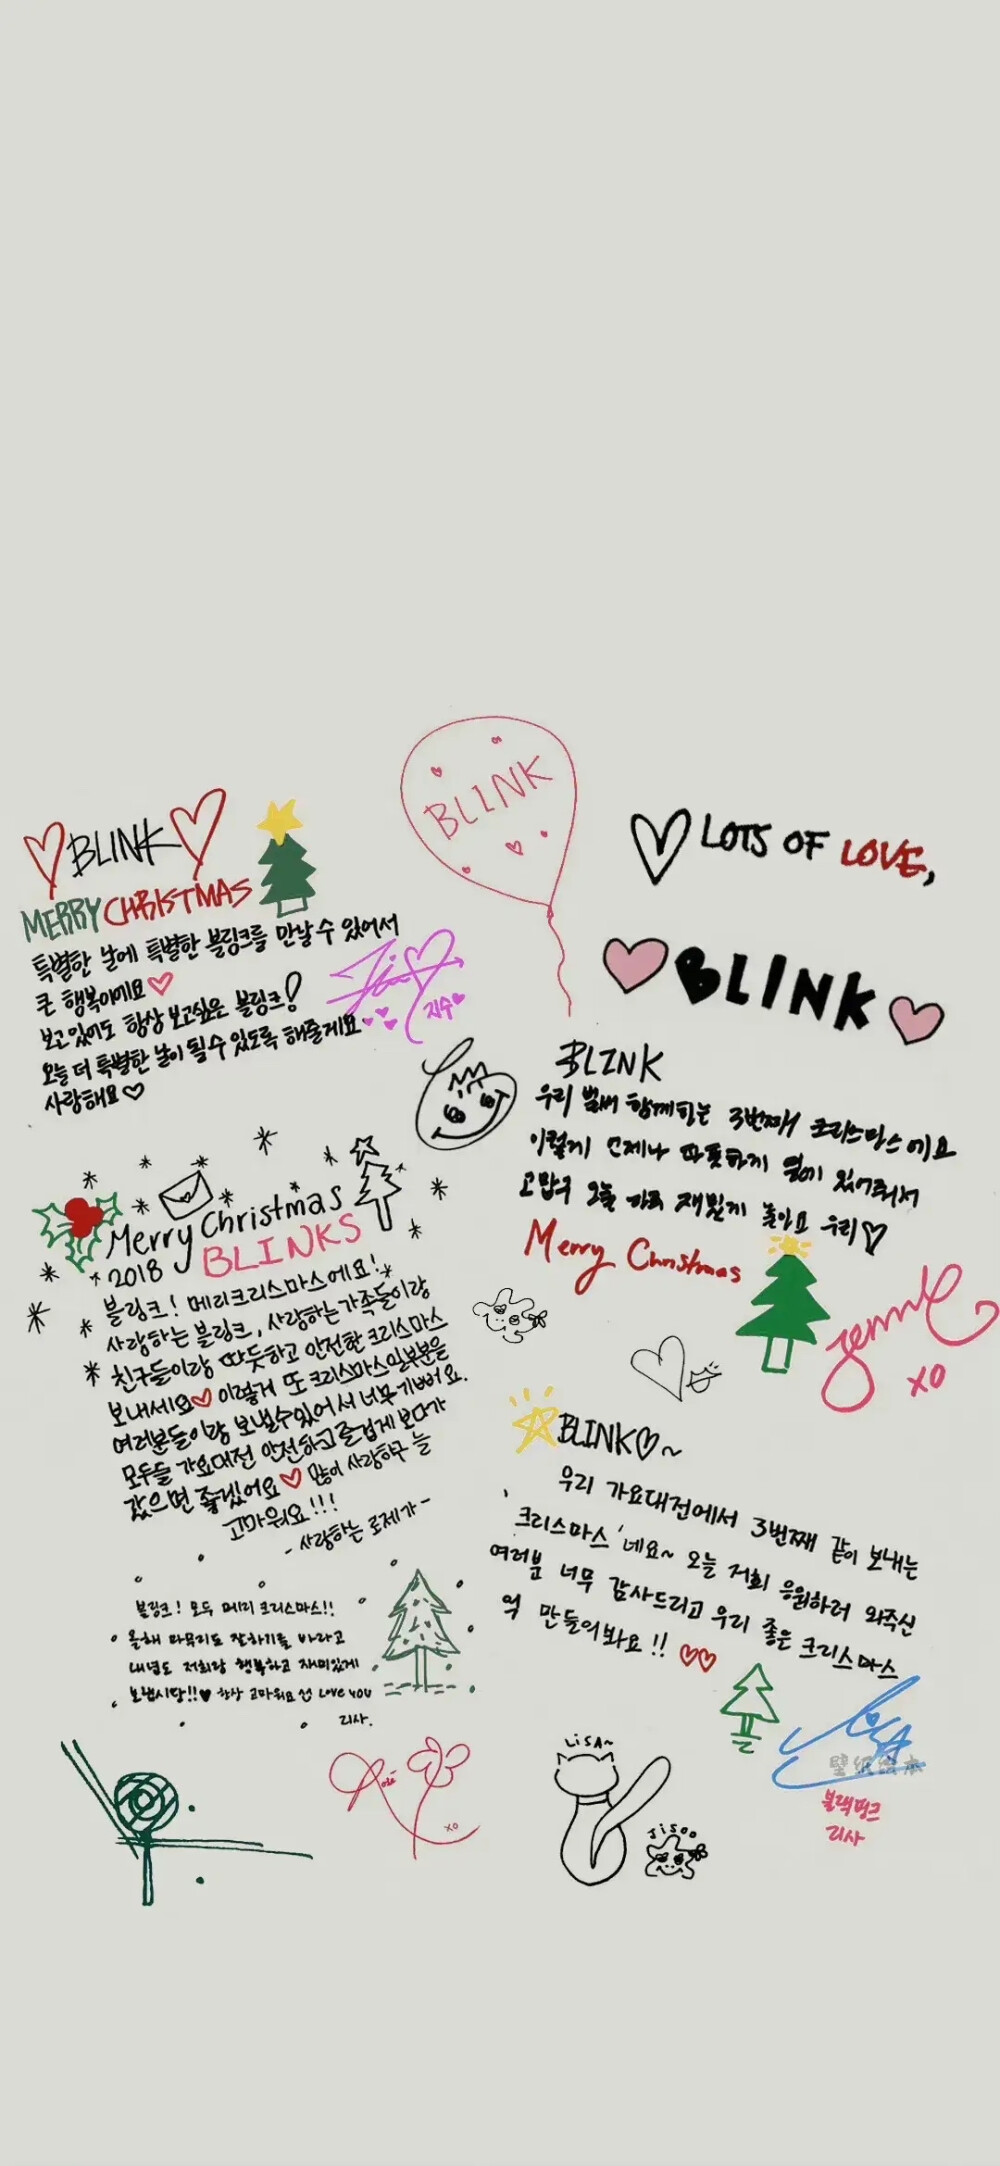 BLINK
♡BLINK♡
MERRY CHRISTMAS
특별한 날에 특별한 블링크를 만날 수 있어서
큰 행복이에요♡
보고있어도 항상 보고싶은 블링크!
오늘 더 특별한 날이 될 수 있도록 해줄게요
사랑해요♡
지수♥
♡ LOTS OF LOVE,
♡BLINK♡
BLINK
우리 벌써 함께하는 3번째 크리스마스에요
이렇게 언제나 따뜻하게 옆에 있어줘서
고맙구 오늘 하루 재밌게 놀아요 우리♡
Merry Christmas
Jennie
XO
Merry Christmas
2018 BLINKS
블링크! 메리크리스마스에요!
사랑하는 블링크, 사랑하는 가족들이랑
친구들이랑 따듯하고 안전한 크리스마스
보내세요♡ 이렇게 또 크리스마스 일부분을
여러분들이랑 보낼수있어서 너무 기뻐요.
모두들 가요대전 안전하고 즐겁게 보다가
갔으면 좋겠어요♡ 많이 사랑하구 늘
고마워요!!!
- 사랑하는 로제가 -
BLINK♡~
우리 가요대전에서 3번째 같이 보내는
크리스마스 네요~ 오늘 저희 응원하러 와주신
여러분 너무 감사드리고 우리 좋은 크리스마스
억 만들어봐요!! ♡♡
블랙핑크
리사
블링크! 모두 메리 크리스마스!!
올해 마무리도 잘하기를 바라고
내년도 저희랑 행복하고 재미있게
보냅시당!!♥ 항상 고마워요 Love you
리사.
Rosé
XO
LiSA~
JiSOO
壁纸绘本